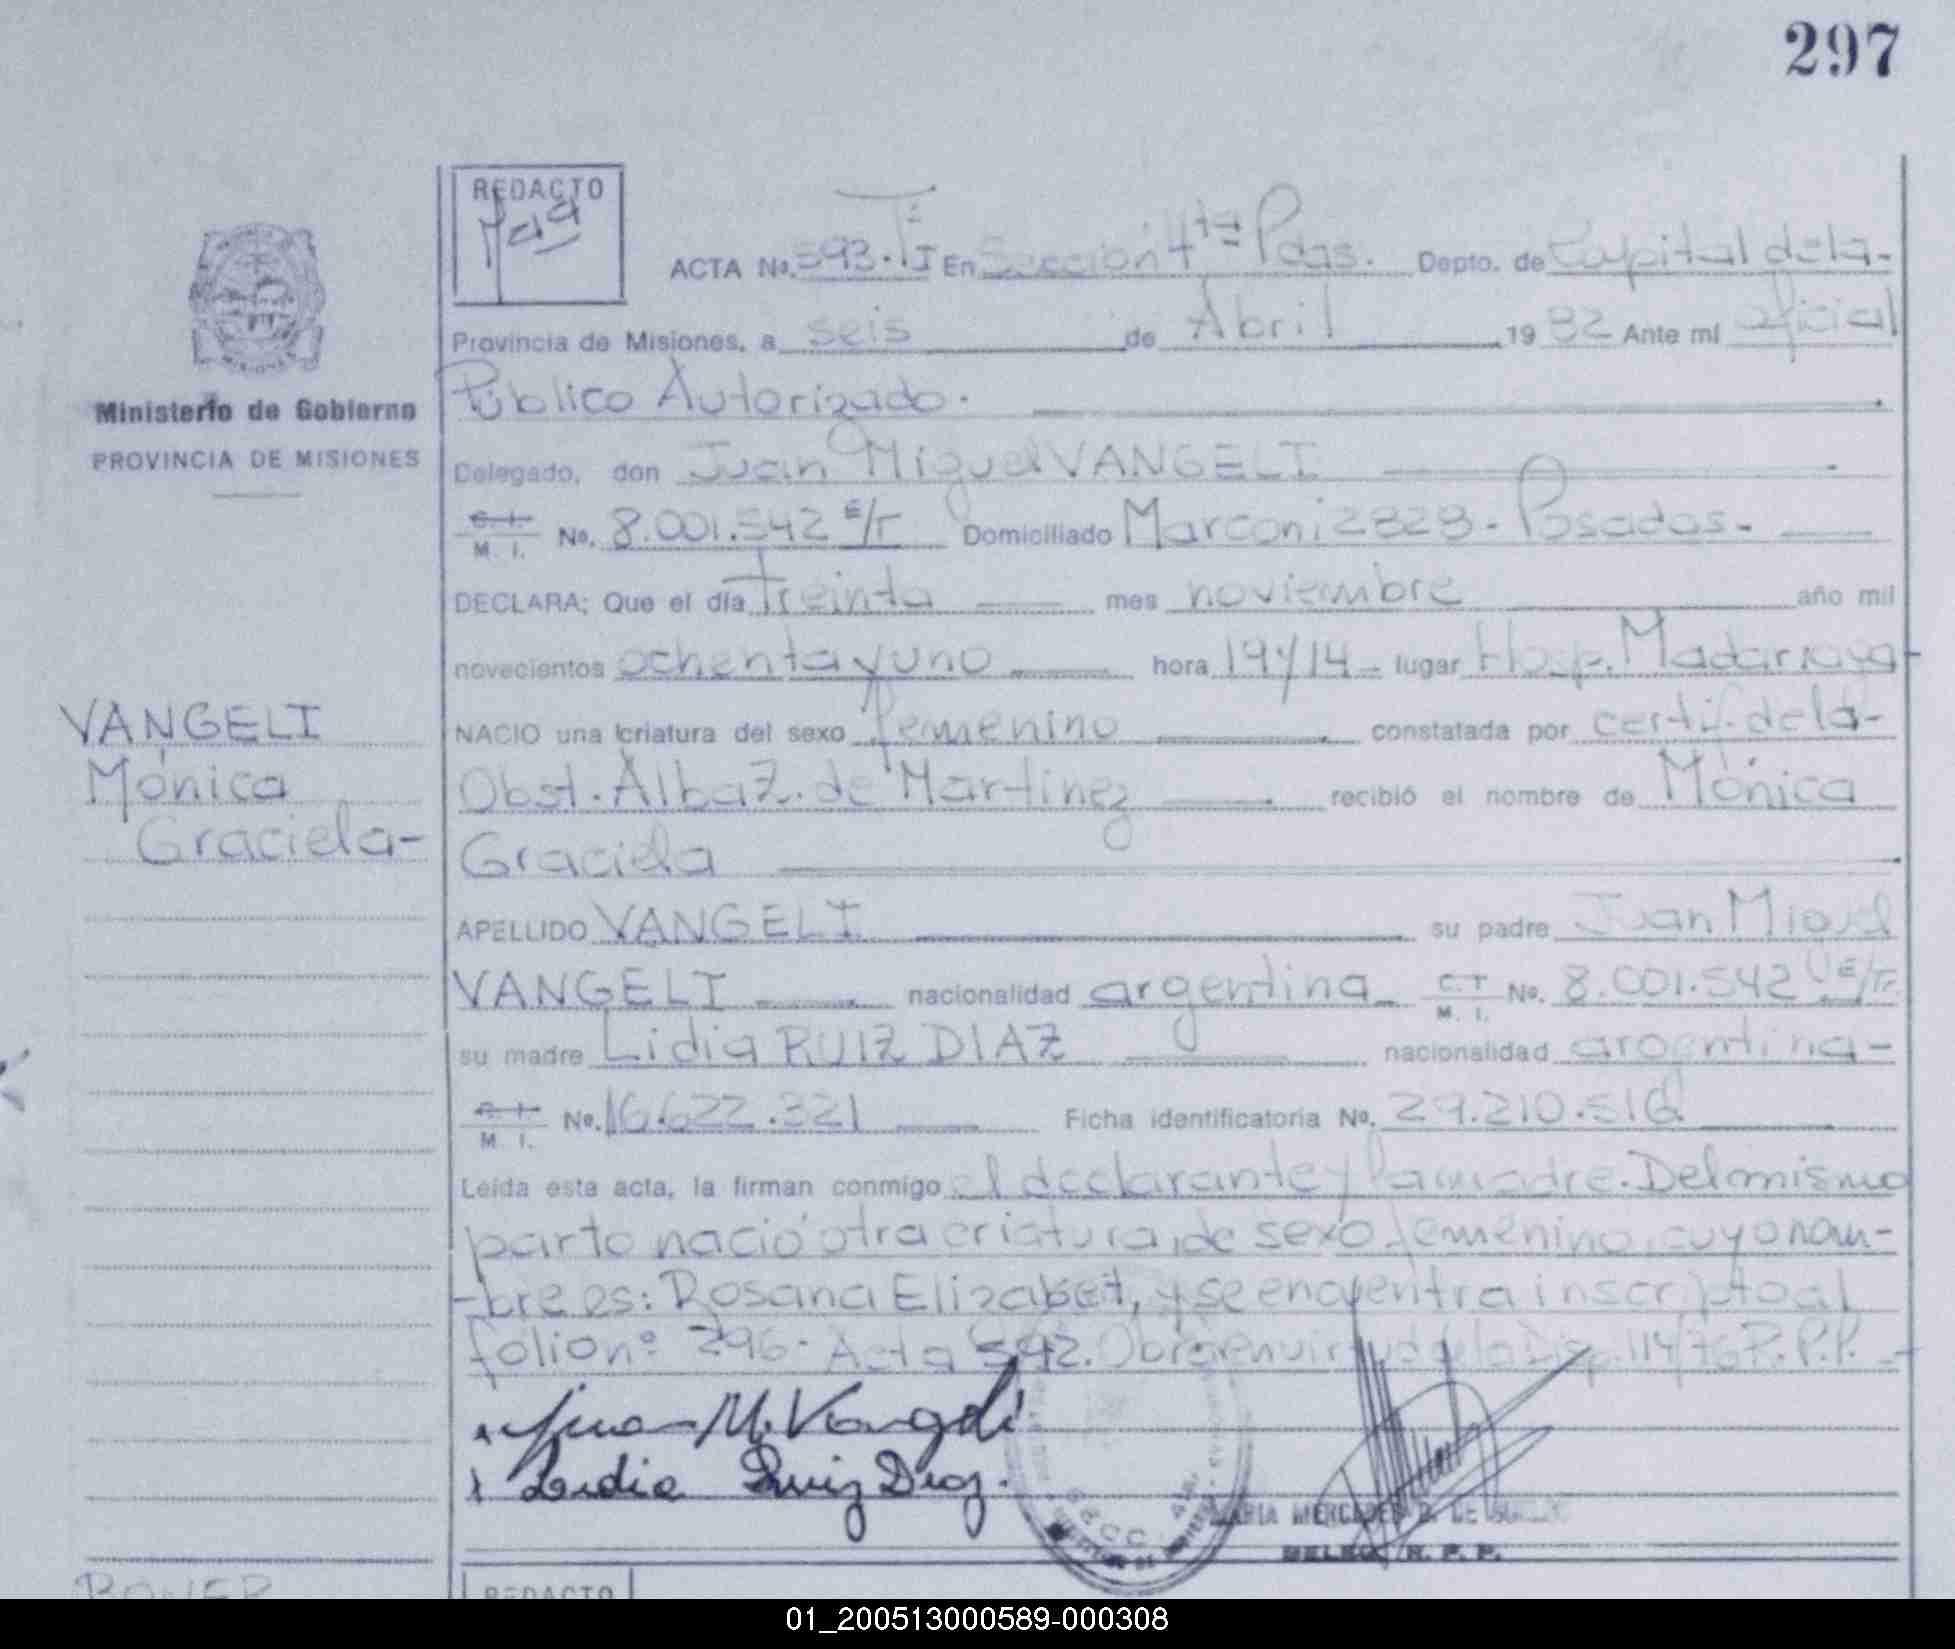 297
REDACTO
ACTA No. 593. TI En Sección 4ta Pdas. Depto. de Capital de la-
Provincia de Misiones, a seis de Abril 1982 Ante mí Oficial
Público Autorizado.
Delegado, don Juan Miguel VANGELI
C. I. M. I. No. 8.001.542 E/T Domiciliado Marconi 2828- Posadas-
DECLARA; Que el día treinta mes noviembre año mil
novecientos ochenta y uno hora 19y14- lugar Hosp. Madariaga-
NACIO una criatura del sexo femenino constatada por certif. de la-
Obst. Alba Z. de Martinez recibió el nombre de Mónica
Graciela
APELLIDO VANGELI su padre Juan Miguel
VANGELI nacionalidad argentina C. I. M. I. No. 8.001.542 E/Tr.
su madre Lidia RUIZ DIAZ nacionalidad argentina-
C. I. M. I. No. 16.622.321 Ficha identificatoria No. 29.210.516
Leída esta acta, la firman conmigo el declarante y la madre. Del mismo
parto nació otra criatura, de sexo femenino, cuyo nom-
-bre es: Rosana Elizabet, y se encuentra inscripto al
folio nº 296- Acta 592. Obra en virtud de la Disp. 114/76 R.P.P.
Juan M. Vangeli
Lidia Ruiz Diaz.
MARIA MERCEDES D. DE
DELEG. R. P. P.
Ministerio de Gobierno
PROVINCIA DE MISIONES
VANGELI
Mónica
Graciela-
REDACTO
01_200513000589-000308